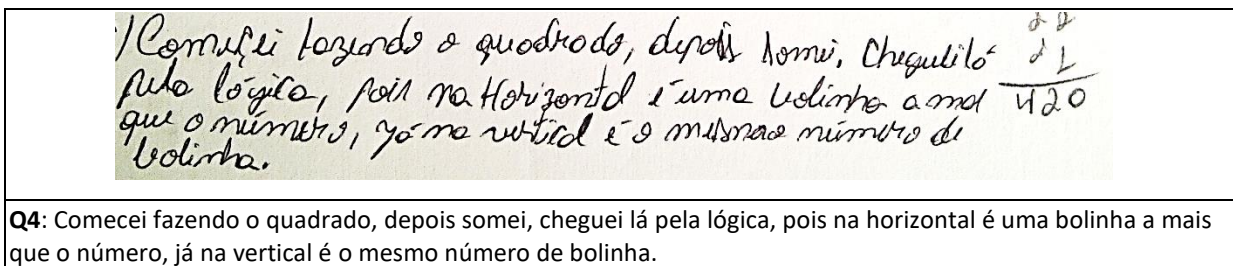 ) Comecei fazendo o quadrado, depois somei, Cheguei lá
pela lógica, pois na Horizontal é uma bolinha a mai
que o número, já na vertical é o mesmo número de
bolinha.
420
Q4: Comecei fazendo o quadrado, depois somei, cheguei lá pela lógica, pois na horizontal é uma bolinha a mais
que o número, já na vertical é o mesmo número de bolinha.